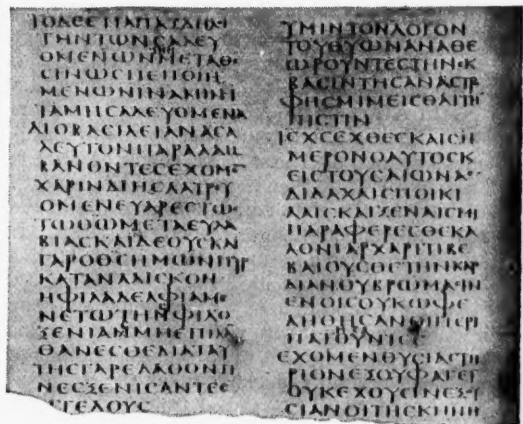 ΤΟΔΕΕΤΙΑΠΑΞΔΗΛΟΙ
ΤΗΝΤΩΝϹΑΛΕΥ
ΟΜΕΝΩΝΜΕΤΑΘΕ
ϹΙΝΩϹΠΕΠΟΙΗ
ΜΕΝΩΝΙΝΑΜΙΝΗ
ΤΑΜΗϹΑΛΕΥΟΜΕΝΑ
ΔΙΟΒΑϹΙΛΕΙΑΝΑϹΑ
ΛΕΥΤΟΝΠΑΡΑΛΑΜ
ΒΑΝΟΝΤΕϹΕΧΟΜΕ
ΧΑΡΙΝΔΙΗϹΛΑΤΡΕΥ
ΟΜΕΝΕΥΑΡΕϹΤΩϹ
ΤΩΘΩΜΕΤΑΕΥΛΑ
ΒΙΑϹΚΑΙΔΕΟΥϹΚΑΙ
ΓΑΡΟΘϹΗΜΩΝΠΥΡ
ΚΑΤΑΝΑΛΙϹΚΟΝ
ΗΦΙΛΑΔΕΛΦΙΑΜΕ
ΝΕΤΩΤΗΝΦΙΛΟ
ΞΕΝΙΑΝΜΗΕΠΙΛΑ
ΘΑΝΕϹΘΕΔΙΑΤΑΥ
ΤΗϹΓΑΡΕΛΑΘΟΝΤΙ
ΝΕϹΞΕΝΙϹΑΝΤΕϹ
ΑΓΓΕΛΟΥϹ
ΥΜΙΝΤΟΝΛΟΓΟΝ
ΤΟΥΘΥΩΝΑΝΑΘΕ
ΩΡΟΥΝΤΕϹΤΗΝΕΚ
ΒΑϹΙΝΤΗϹΑΝΑϹΤΡΟ
ΦΗϹΜΙΜΕΙϹΘΑΙΤΗΝ
ΠΙϹΤΙΝ
ΙϹΧϹΕΧΘΕϹΚΑΙϹΗ
ΜΕΡΟΝΟΑΥΤΟϹΚ
ΕΙϹΤΟΥϹΑΙΩΝΑϹ
ΔΙΔΑΧΑΙϹΠΟΙΚΙ
ΛΑΙϹΚΑΙΞΕΝΑΙϹΜΗ
ΠΑΡΑΦΕΡΕϹΘΕΚΑ
ΛΟΝΓΑΡΧΑΡΙΤΙΒΕ
ΒΑΙΟΥϹΘΕΤΗΝΚΑΡ
ΔΙΑΝΟΥΒΡΩΜΑϹΙΝ
ΕΝΟΙϹΟΥΚΩΦΕ
ΛΗΘΗϹΑΝΟΙΠΕΡΙ
ΠΑΤΟΥΝΤΕϹ
ΕΧΟΜΕΝΘΥϹΙΑϹΤΗ
ΡΙΟΝΕΞΟΥΦΑΓΕΙΝ
ΟΥΚΕΧΟΥϹΙΝΕΞΟΥ
ϹΙΑΝΟΙΤΗϹΚΗΝΗ